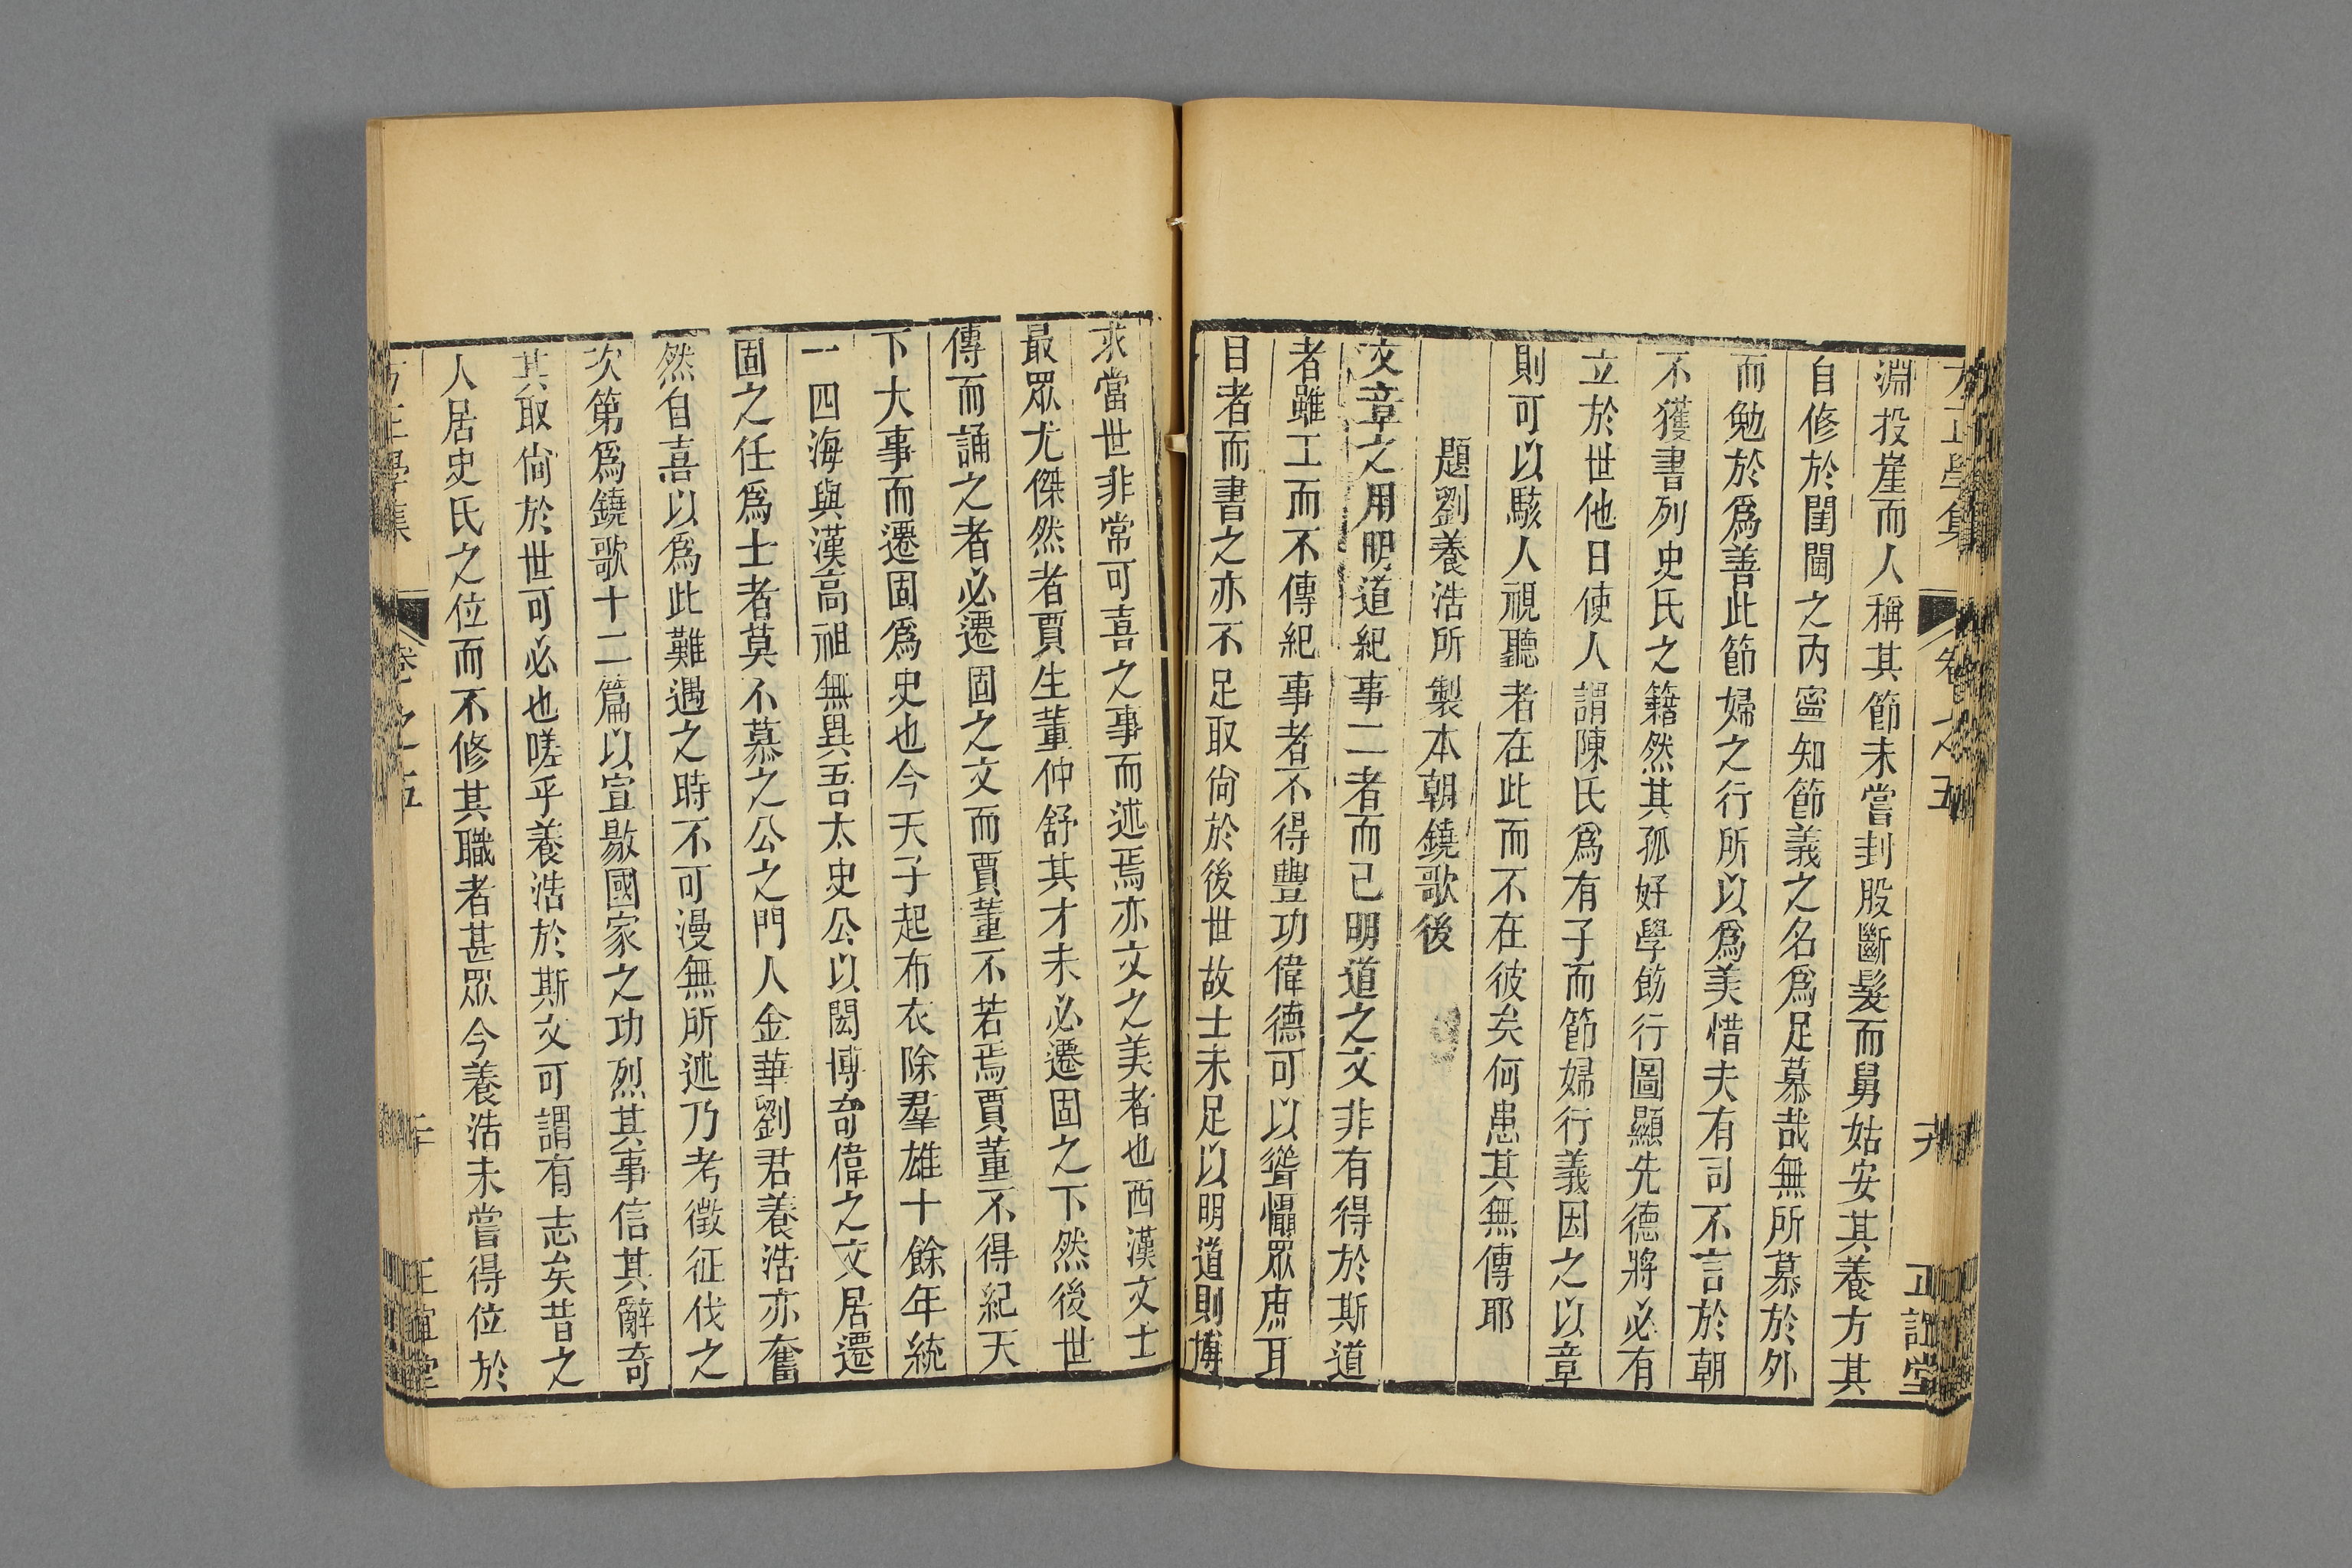 方正學集 卷之五 十九 正誼堂
淵投崖而人稱其節未嘗刲股斷髮而舅姑安其養方其
自修於閨閫之內寧知節義之名爲足慕哉無所慕於外
而勉於爲善此節婦之行所以爲美惜夫有司不言於朝
不獲書列史氏之籍然其孤好學飭行圖顯先德將必有
立於世他日使人謂陳氏爲有子而節婦行義因之以章
則可以駭人視聽者在此而不在彼矣何患其無傳耶
題劉養浩所製本朝鐃歌後
文章之用明道紀事二者而已明道之文非有得於斯道
者雖工而不傳紀事者不得豐功偉德可以聳懾眾庶耳
目者而書之亦不足取尙於後世故士未足以明道則博
求當世非常可喜之事而述焉亦文之美者也西漢文士
最眾尤傑然者賈生董仲舒其才未必遷固之下然後世
傳而誦之者必遷固之文而賈董不若焉賈董不得紀天
下大事而遷固爲史也今天子起布衣除羣雄十餘年統
一四海與漢高祖無異吾太史公以閎博奇偉之文居遷
固之任爲士者莫不慕之公之門人金華劉君養浩亦奮
然自喜以爲此難遇之時不可漫無所述乃考徵征伐之
次第爲鐃歌十二篇以宣敭國家之功烈其事信其辭奇
其取尙於世可必也嗟乎養浩於斯文可謂有志矣昔之
人居史氏之位而不修其職者甚眾今養浩未嘗得位於
方正學集 卷之五 二十 正誼堂